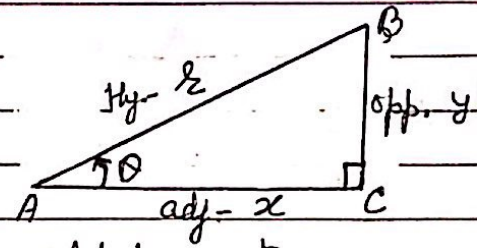 B
Hy- r
opp. y
θ
A
adj- x
C